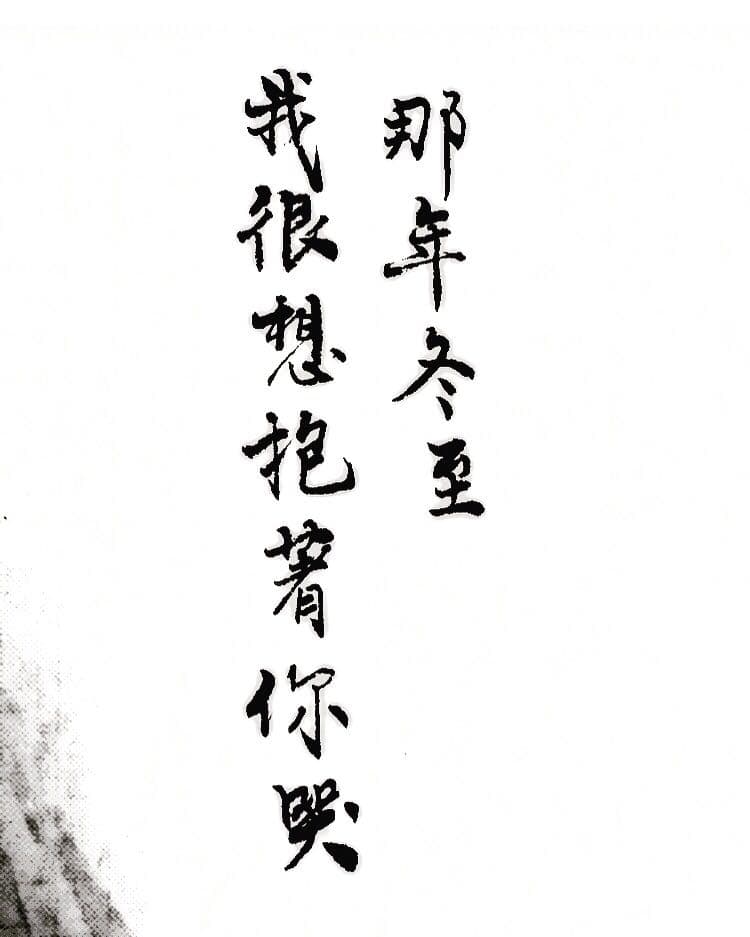 那年冬至
我很想抱著你哭